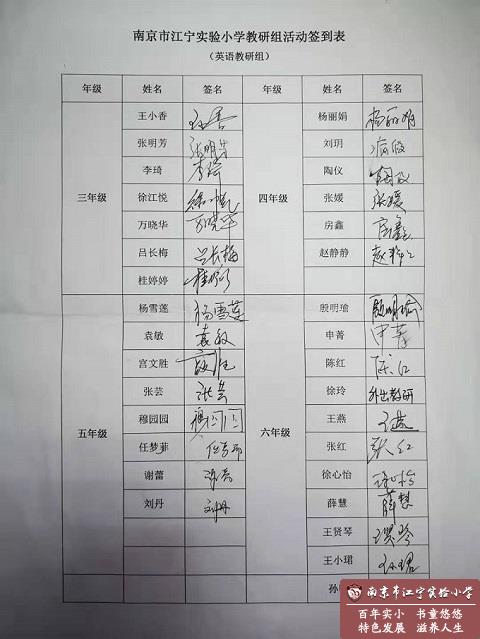 南京市江宁实验小学教研组活动签到表
（英语教研组）
年级 姓名 签名 年级 姓名 签名
三年级 四年级
王小香 杨丽娟 杨丽娟
张明芳 张明芳 刘玥
李琦 李琦 陶仪 陶仪
徐江悦 张媛 张媛
万晓华 万晓华 房鑫 房鑫
吕长梅 吕长梅 赵静静 赵静静
桂婷婷 桂婷婷
五年级 六年级
杨雪莲 杨雪莲 殷明瑜 殷明瑜
袁敏 袁敏 申菁 申菁
宫文胜 陈红 陈红
张芸 张芸 徐玲 外出教研
穆园园 穆园园 王燕 王燕
任梦菲 张红 张红
谢蕾 徐心怡 徐心怡
刘丹 刘丹 薛慧 薛慧
王贤琴
王小珺
孙
南京市江宁实验小学
百年实小 书童悠悠
特色发展 滋养人生